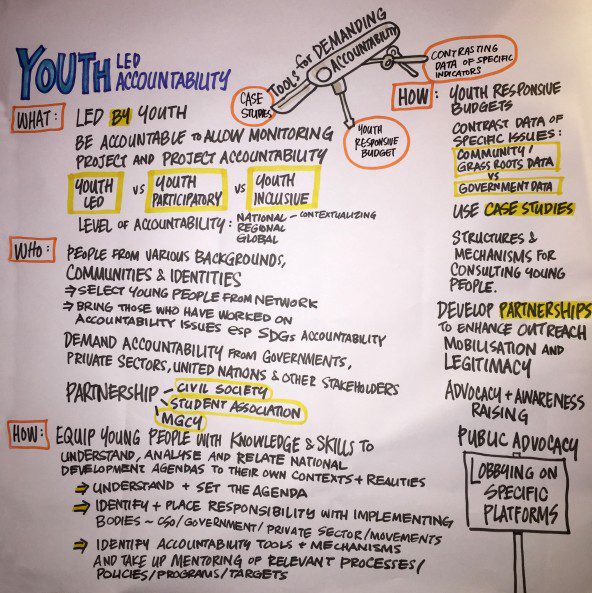 YOUTH LED
ACCOUNTABILITY
TOOLS for DEMANDING
ACCOUNTABILITY
CONTRASTING
DATA OF SPECIFIC
INDICATORS
CASE
STUDIES
YOUTH
RESPONSIVE
BUDGET
WHAT:
LED BY YOUTH
BE ACCOUNTABLE to ALLOW MONITORING
PROJECT AND PROJECT ACCOUNTABILITY
YOUTH LED vs YOUTH PARTICIPATORY vs YOUTH INCLUSIVE
LEVEL OF ACCOUNTABILITY: NATIONAL - CONTEXTUALIZING
REGIONAL
GLOBAL
WHO:
PEOPLE FROM VARIOUS BACKGROUNDS,
COMMUNITIES & IDENTITIES
⇒ SELECT YOUNG PEOPLE FROM NETWORK
⇒ BRING THOSE WHO HAVE WORKED ON
ACCOUNTABILITY ISSUES esp SDGs ACCOUNTABILITY
DEMAND ACCOUNTABILITY FROM GOVERNMENTS,
PRIVATE SECTORS, UNITED NATIONS & OTHER STAKEHOLDERS
PARTNERSHIP - CIVIL SOCIETY
- STUDENT ASSOCIATION
MGCY
HOW:
EQUIP YOUNG PEOPLE WITH KNOWLEDGE & SKILLS TO
UNDERSTAND, ANALYSE AND RELATE NATIONAL
DEVELOPMENT AGENDAS TO THEIR OWN CONTEXTS + REALITIES
⇒ UNDERSTAND + SET THE AGENDA
⇒ IDENTIFY + PLACE RESPONSIBILITY WITH IMPLEMENTING
BODIES ~ CSO/GOVERNMENT/PRIVATE SECTOR/MOVEMENTS
⇒ IDENTIFY ACCOUNTABILITY TOOLS + MECHANISMS
AND TAKE UP MENTORING OF RELEVANT PROCESSES/
POLICIES/PROGRAMS/TARGETS
HOW:
YOUTH RESPONSIVE
BUDGETS
CONTRAST DATA OF
SPECIFIC ISSUES:
COMMUNITY/
GRASS ROOTS DATA
vs
GOVERNMENT DATA
USE CASE STUDIES
STRUCTURES &
MECHANISMS FOR
CONSULTING YOUNG
PEOPLE.
DEVELOP PARTNERSHIPS
TO ENHANCE OUTREACH
MOBILISATION AND
LEGITIMACY
ADVOCACY + AWARENESS
RAISING
PUBLIC ADVOCACY
LOBBYING ON
SPECIFIC
PLATFORMS